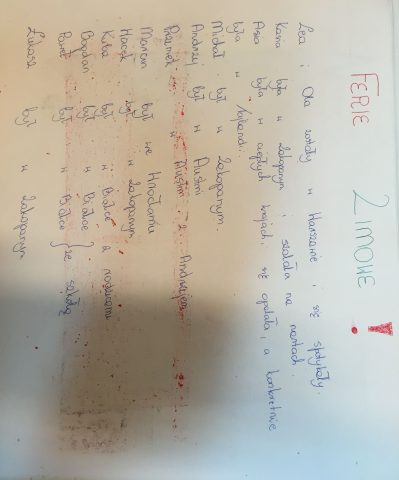 FERIE ZIMOWE !
Lea i Ola zostały w Warszawie i się spotykały.
była w Zakopanym i szalała na nartach.
Asia była w ciepłych krajach, się opalała, a konkretnie
była w
Michał był w Zakopanym.
Andrzej był w Austrii
w Austrii z Andrzejem.
Marcin był we Wrocławiu
Maciek był w Zakopanym
Kuba był w Białce z rodzicami
Bogdan był w Białce } ze szkołą
Paweł był w Białce
Łukasz był w Zakopanym